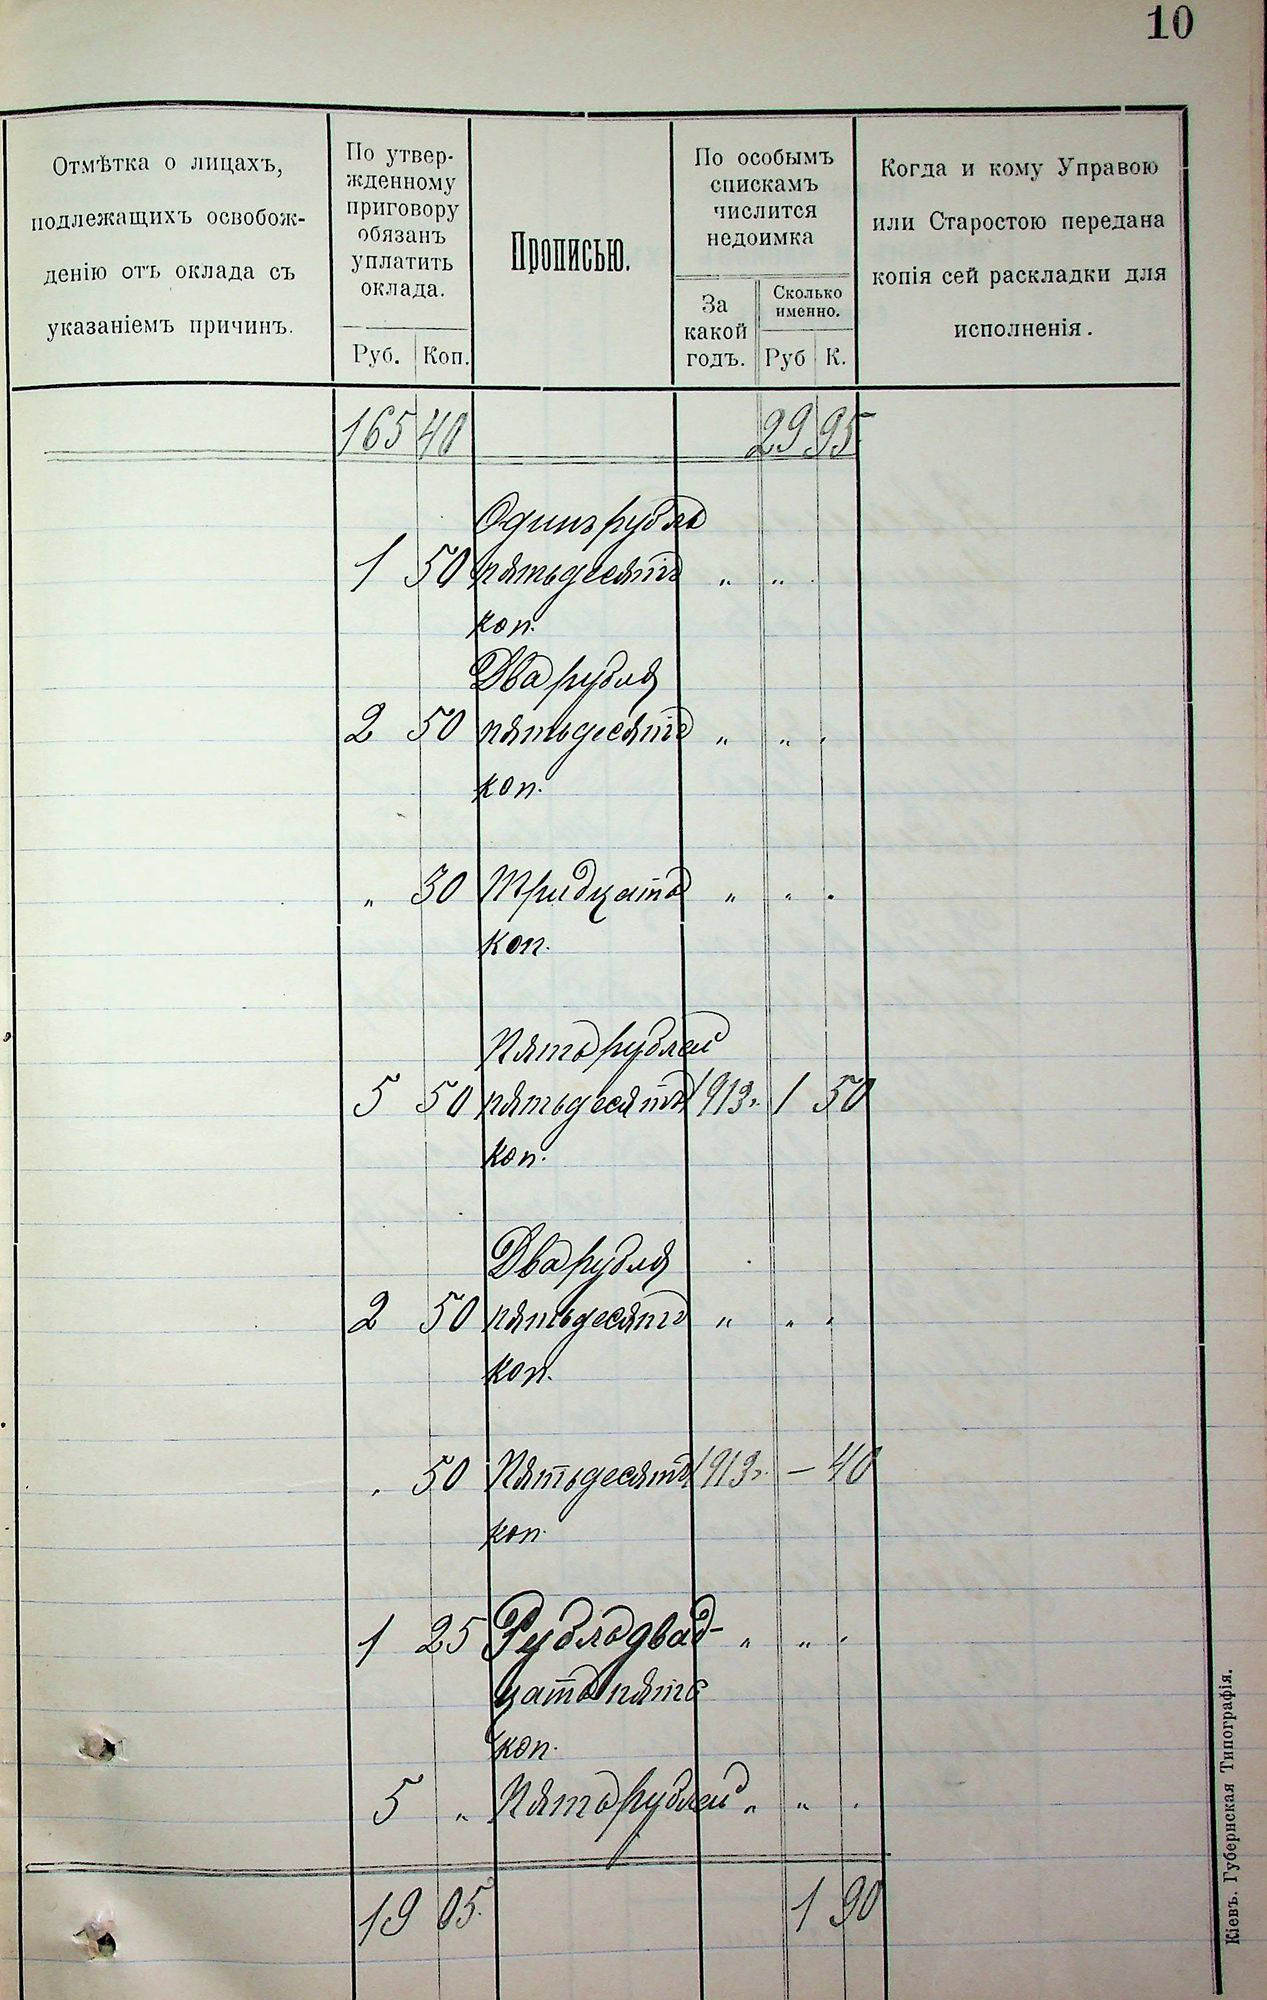 10
Отмѣтка о лицахъ,
подлежащихъ освобож-
денію отъ оклада съ
указаніемъ причинъ.
По утвер-
жденному
приговору
обязанъ
уплатить
оклада.
Руб. Коп.
Прописью.
По особымъ
спискамъ
числится
недоимка
За
какой
годъ.
Сколько
именно.
Руб К.
Когда и кому Управою
или Старостою передана
копія сей раскладки для
исполненія.
165 40 29 95
Одинъ рубль
1 50 пятьдесятъ " " .
коп.
Два рубля
2 50 пятьдесятъ " " .
коп.
" 30 Тридцать " " .
коп.
Пять рублей
5 50 пятьдесятъ 1913г. 1 50
коп.
Два рубля
2 50 пятьдесятъ " " .
коп.
. 50 Пятьдесятъ 1913г. — 40
коп.
1 25 Рубль двад- " " .
цать пять
коп.
5 " Пять рублей " " .
19 05. 1 90
Кіевъ. Губернская Типографія.